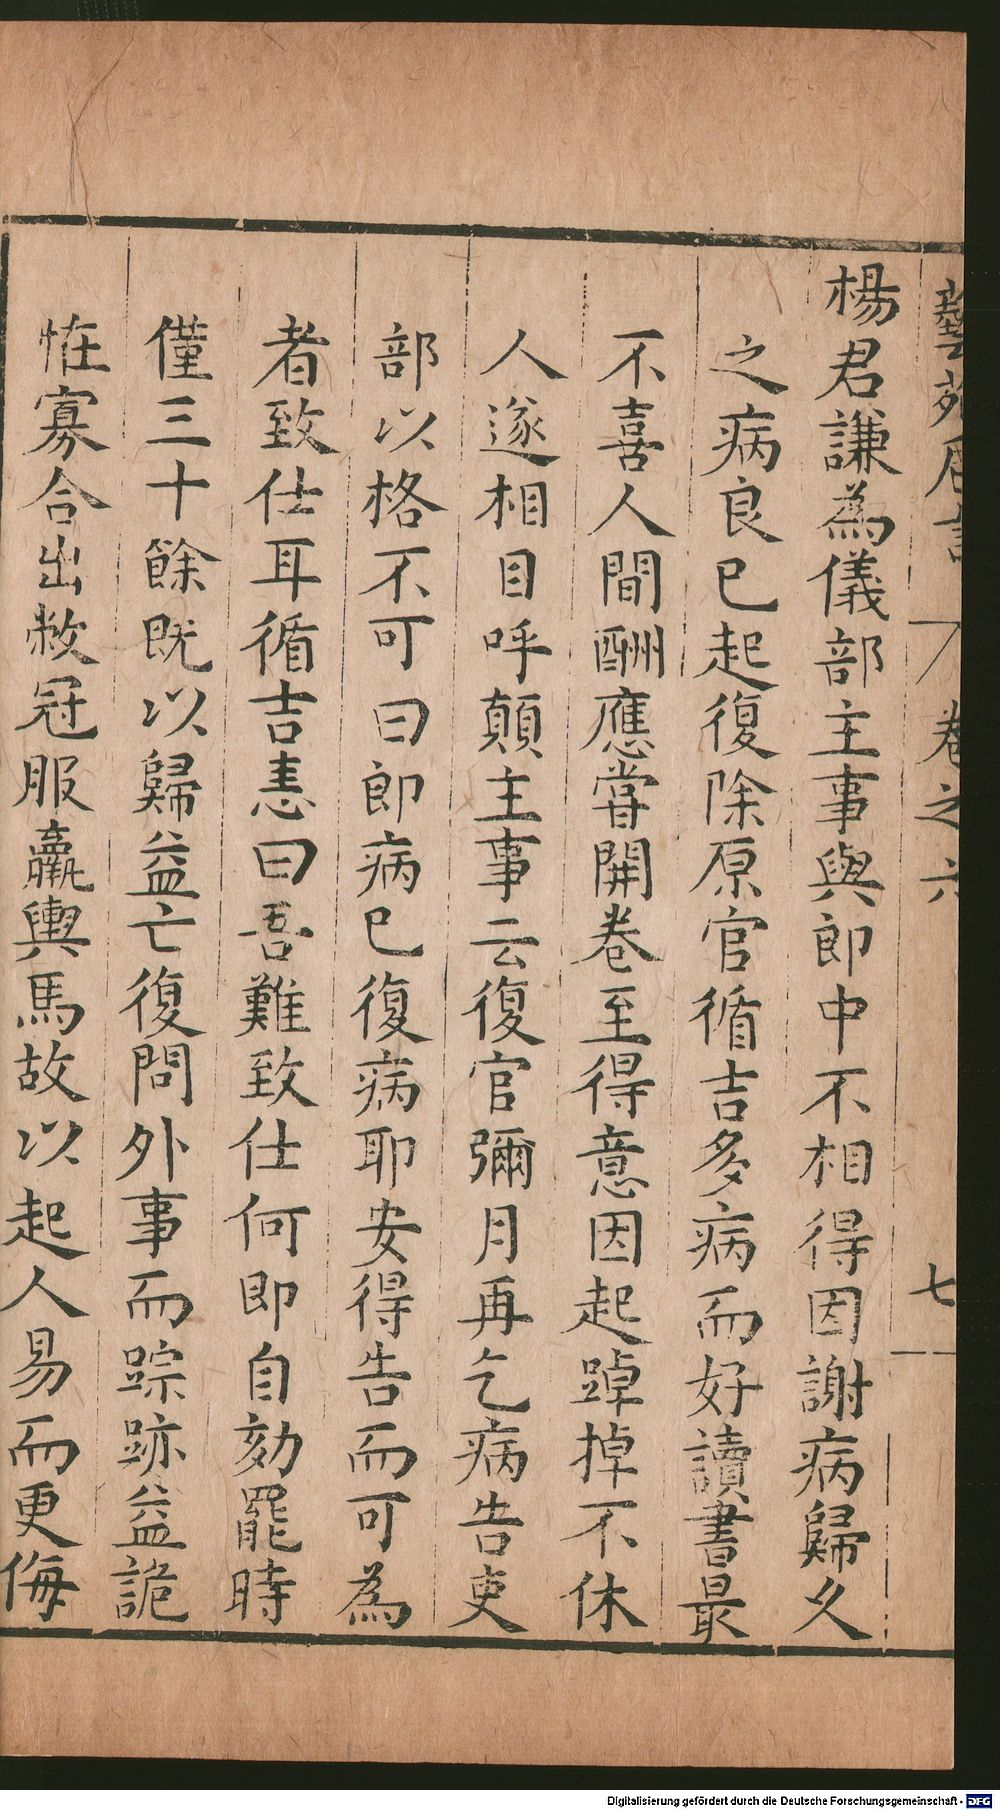 藝苑卮言 卷之六 七
楊君謙為儀部主事與郎中不相得因謝病歸久
之病良已起復除原官循吉多病而好讀書最
不喜人間酬應嘗開卷至得意因起踔掉不休
人遂相目呼顛主事云復官彌月再乞病告吏
部以格不可曰郎病已復病耶安得告而可為
者致仕耳循吉恚曰吾難致仕何即自劾罷時
僅三十餘既以歸益亡復問外事而踪跡益詭
恠寡合出敝冠服羸輿馬故以起人易而更侮
Digitalisierung gefördert durch die Deutsche Forschungsgemeinschaft - DFG